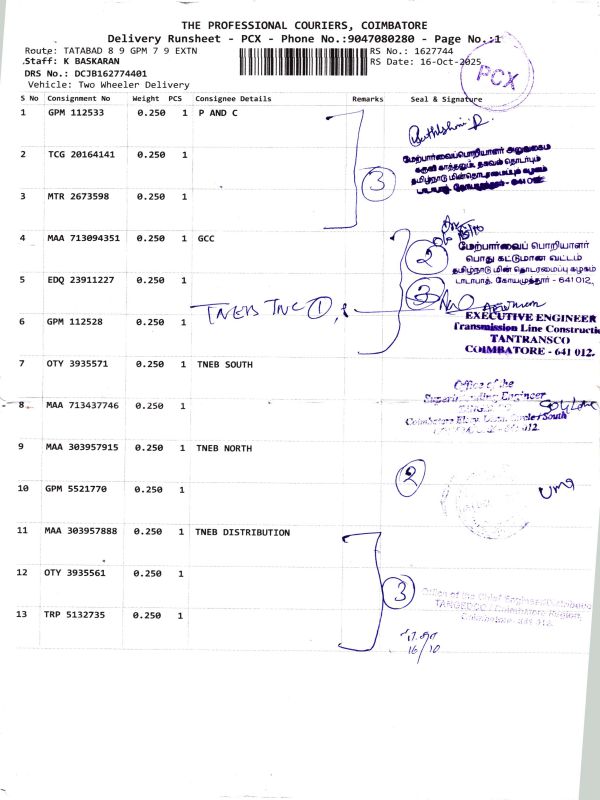 THE PROFESSIONAL COURIERS, COIMBATORE
Delivery Runsheet - PCX - Phone No.:9047080280 - Page No.:1
Route: TATABAD 8 9 GPM 7 9 EXTN
RS No.: 1627744
Staff: K BASKARAN
RS Date: 16-Oct-2025
DRS No.: DCJB162774401
PCX
Vehicle: Two Wheeler Delivery
S No Consignment No Weight PCS Consignee Details Remarks Seal & Signature
1 GPM 112533 0.250 1 P AND C
2 TCG 20164141 0.250 1
மேற்பார்வைப்பொறியாளர் அலுவலகம்
தமிழ்நாடு மின்தொடரமைப்பு கழகம்
3
3 MTR 2673598 0.250 1
4 MAA 713094351 0.250 1 GCC
மேற்பார்வைப் பொறியாளர்
2
பொது கட்டுமான வட்டம்
தமிழ்நாடு மின் தொடரமைப்பு கழகம்
டாடாபாத், கோயமுத்தூர் - 641 012.
5 EDQ 23911227 0.250 1
TNEB TNC 1,
EXECUTIVE ENGINEER
6 GPM 112528 0.250 1
Transmission Line Constructi
TANTRANSCO
COIMBATORE - 641 012.
7 OTY 3935571 0.250 1 TNEB SOUTH
Office of the
Superintending Engineer
8 MAA 713437746 0.250 1
9 MAA 303957915 0.250 1 TNEB NORTH
2
Uma
10 GPM 5521770 0.250 1
11 MAA 303957888 0.250 1 TNEB DISTRIBUTION
12 OTY 3935561 0.250 1
3
Office of the Chief Engineer/Distribution
TANGEDCO / Coimbatore Region,
Coimbatore - 641 012.
13 TRP 5132735 0.250 1
16/10